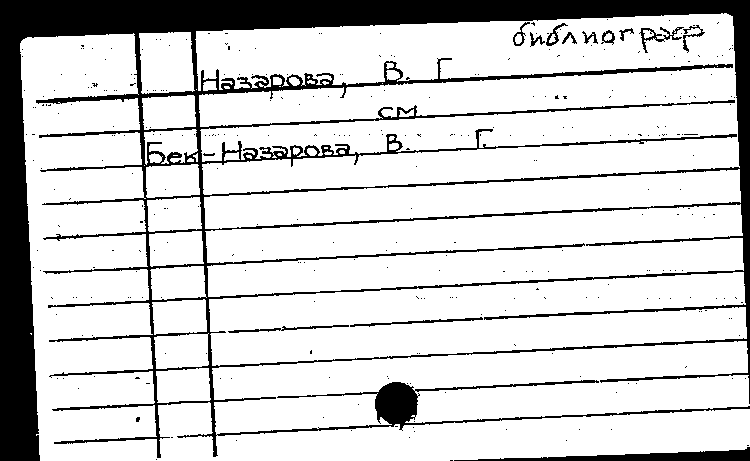 библиограф
Назарова, В. Г
см.
Бек-Назарова, В. Г.